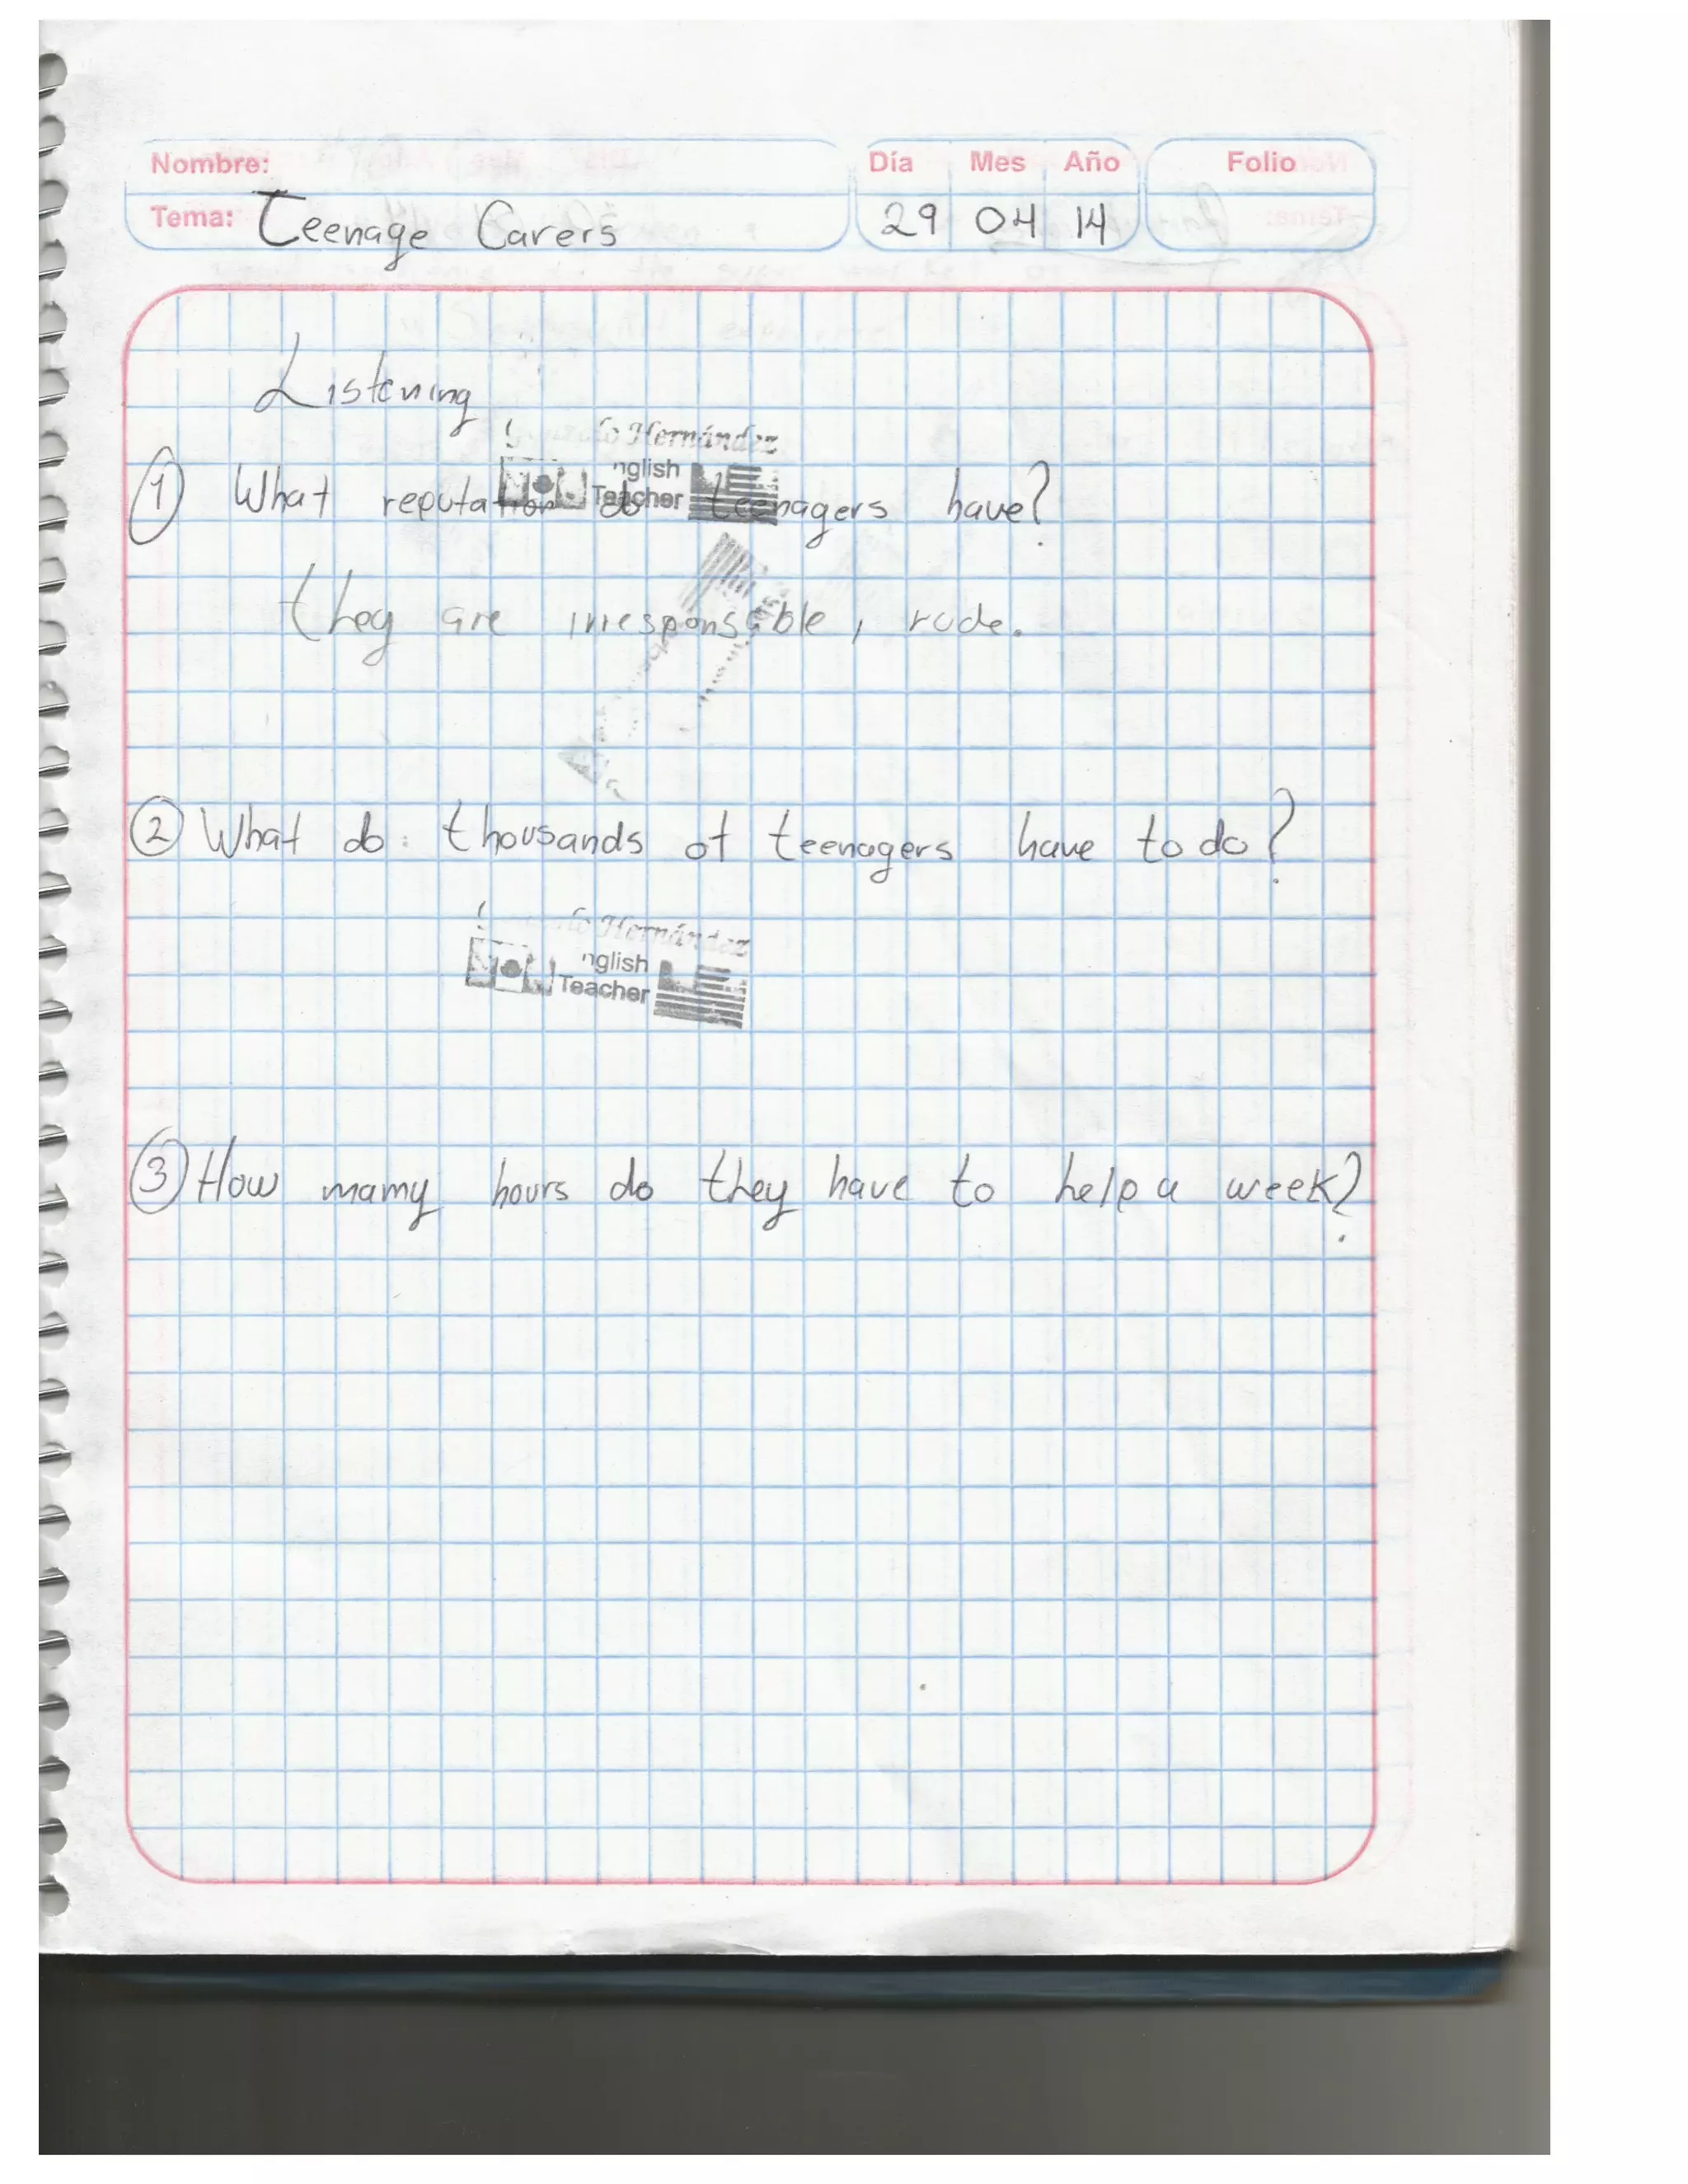 Nombre:
Día Mes Año
Folio
Tema: Teenage Carers
29 04 14
Listening
Hernández
nglish
Teacher
1 What reputation do teenagers have?
they are irresponsable, rude.
2 What do thousands of teenagers have to do?
Hernández
nglish
Teacher
3 How mamy hours do they have to help a week?